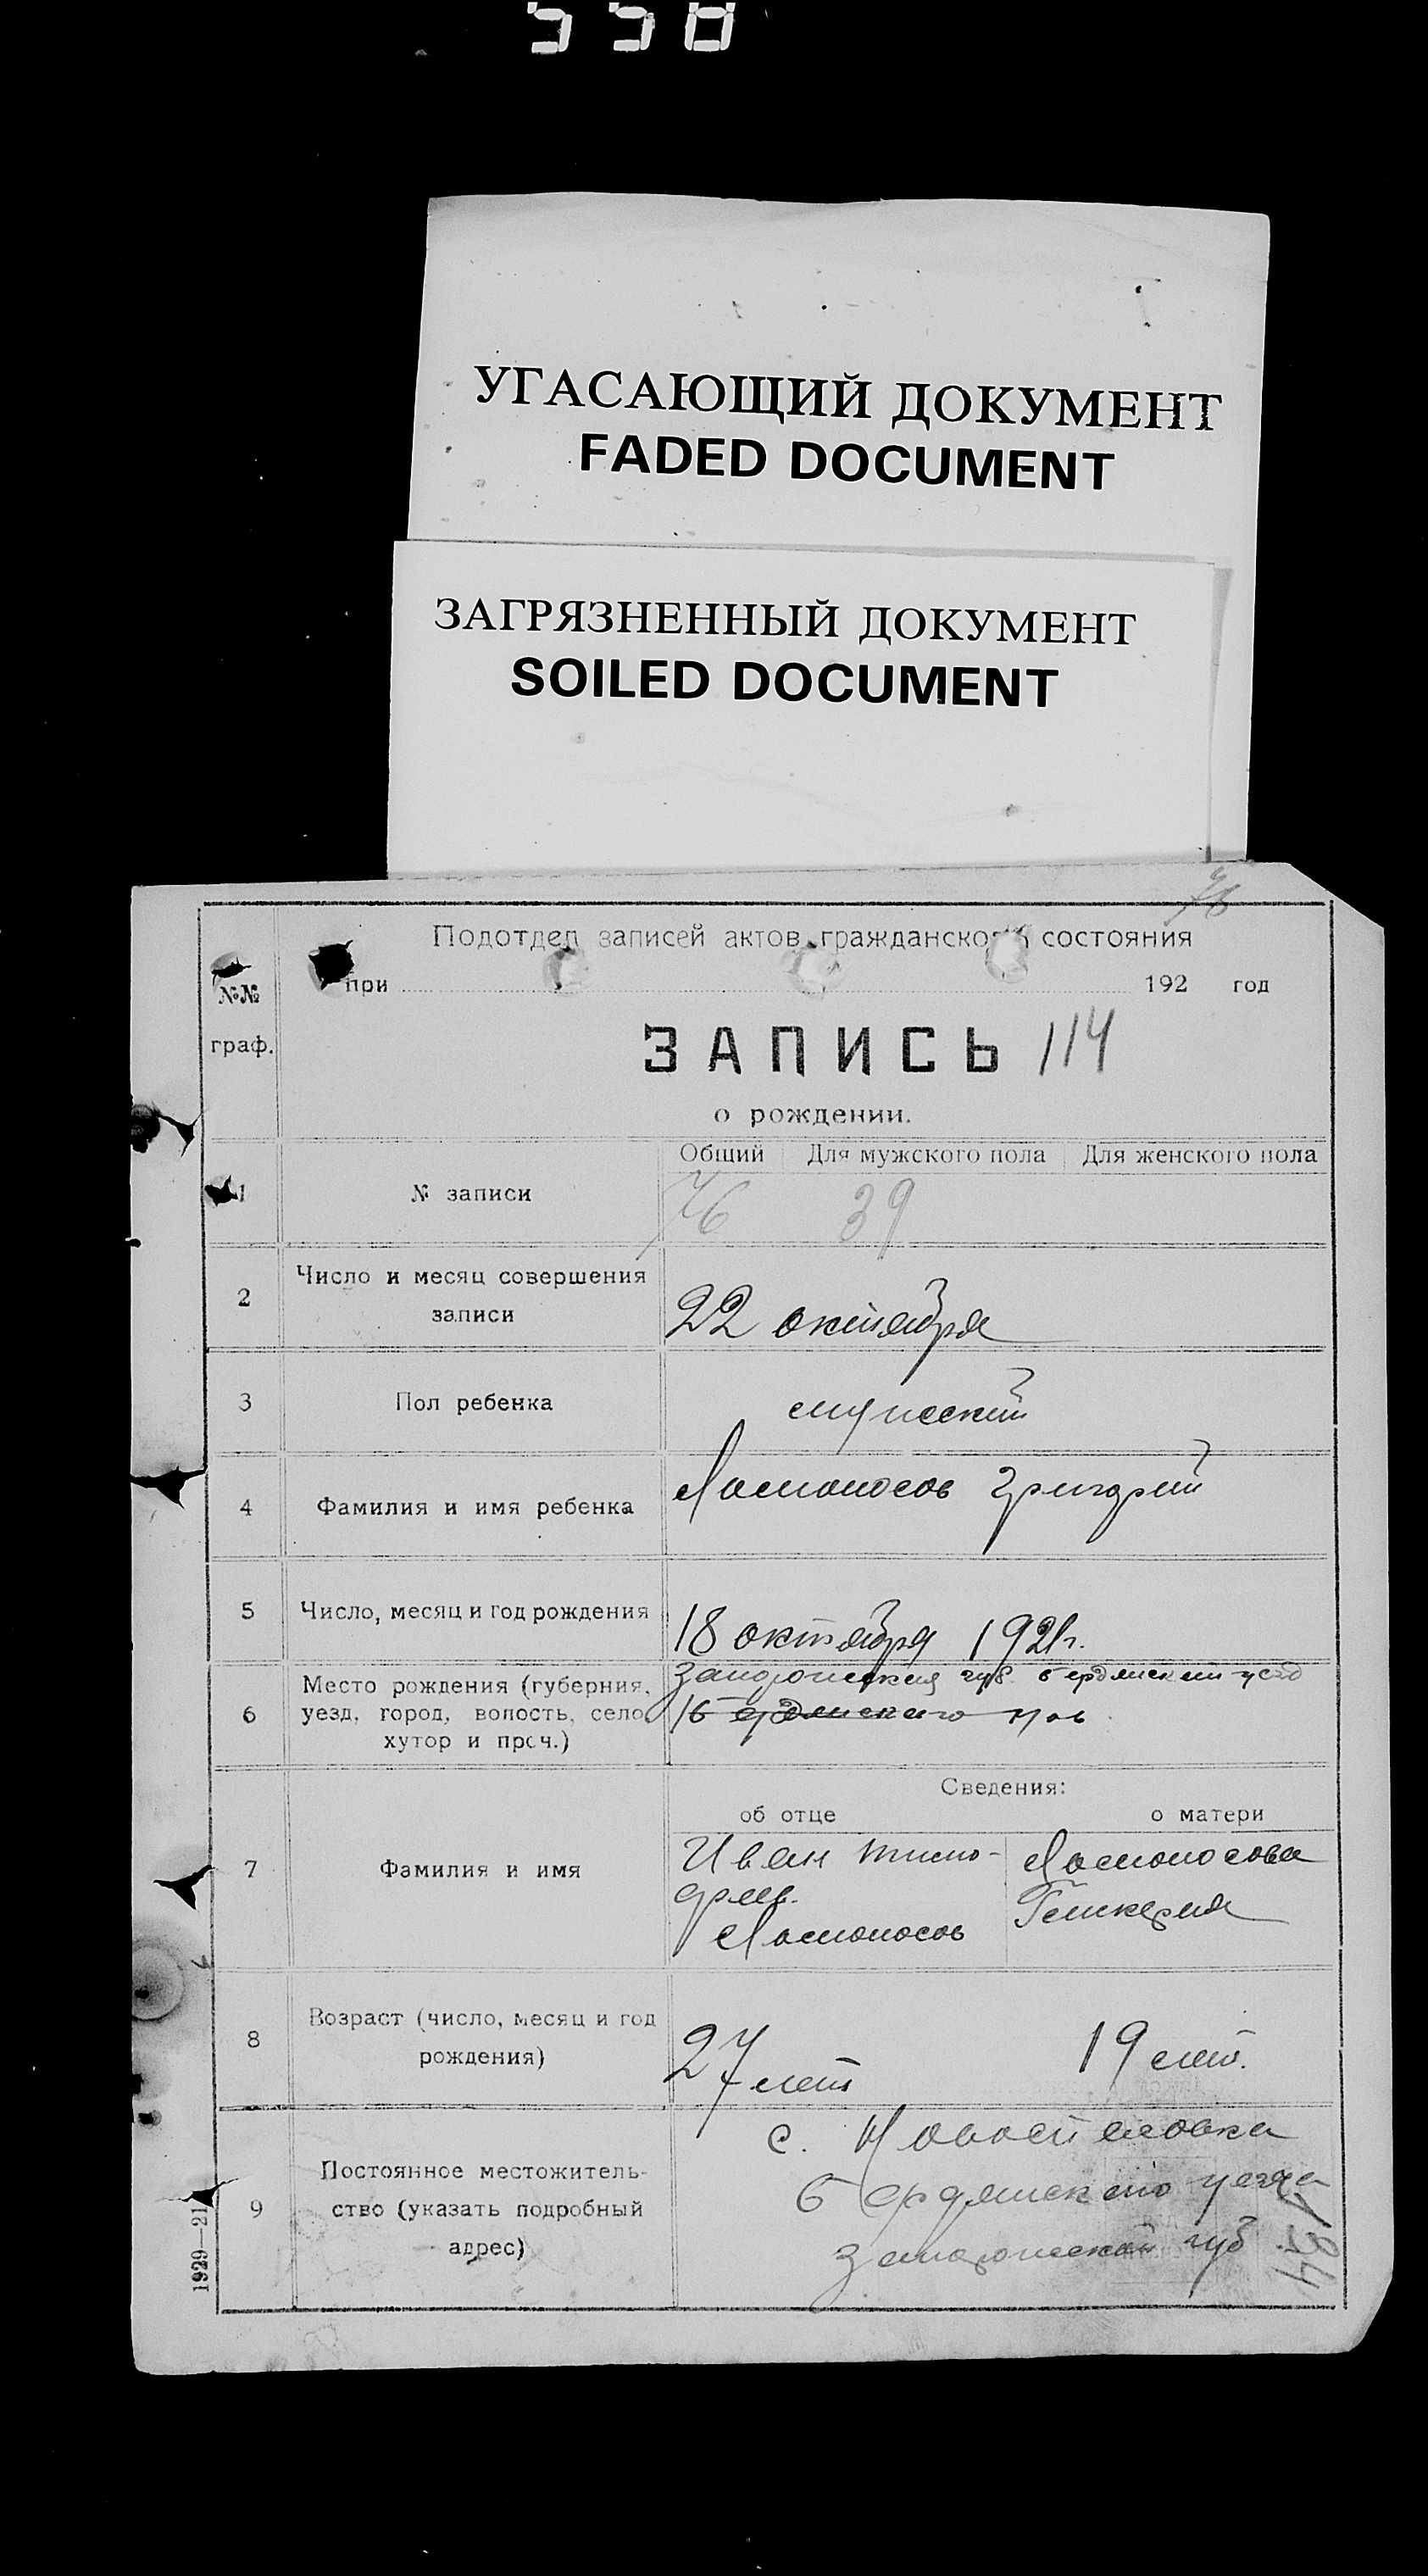 558
УГАСАЮЩИЙ ДОКУМЕНТ
FADED DOCUMENT
ЗАГРЯЗНЕННЫЙ ДОКУМЕНТ
SOILED DOCUMENT
76
Подотдел записей актов гражданского состояния
при 192 год
№№
граф.
ЗАПИСЬ 114
о рождении.
Общий Для мужского пола Для женского пола
1 № записи 76 39
2 Число и месяц совершения
записи
22 октября
3 Пол ребенка мужеский
4 Фамилия и имя ребенка Ломоносов Григорий
5 Число, месяц и год рождения 18 октября 1921г.
6 Место рождения (губерния,
уезд, город, волость, село,
хутор и проч.)
Запорожская губ. бердянский уезд
Бердянского
Сведения:
об отце о матери
7 Фамилия и имя
Иван Тимо-
феев.
Ломоносов
Ломоносова
Гликерия
8 Возраст (число, месяц и год
рождения)
27 лет 19 лет.
9 Постоянное местожитель-
ство (указать подробный
адрес)
с.
Бердянского уезда
Запорожской губ
1929—21